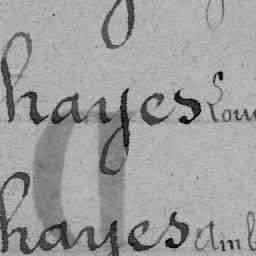 hayes Lou
hayes Amb